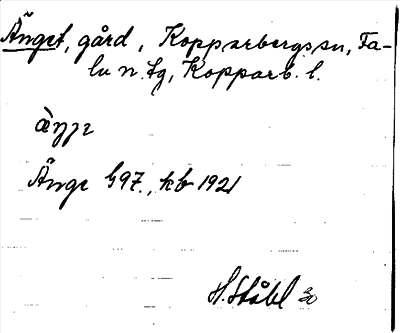 Änget, gård, Kopparbergs sn, Fa-
lu n. tg, Kopparb. l.
Änge G97., kb 1921
H. Ståhl 30